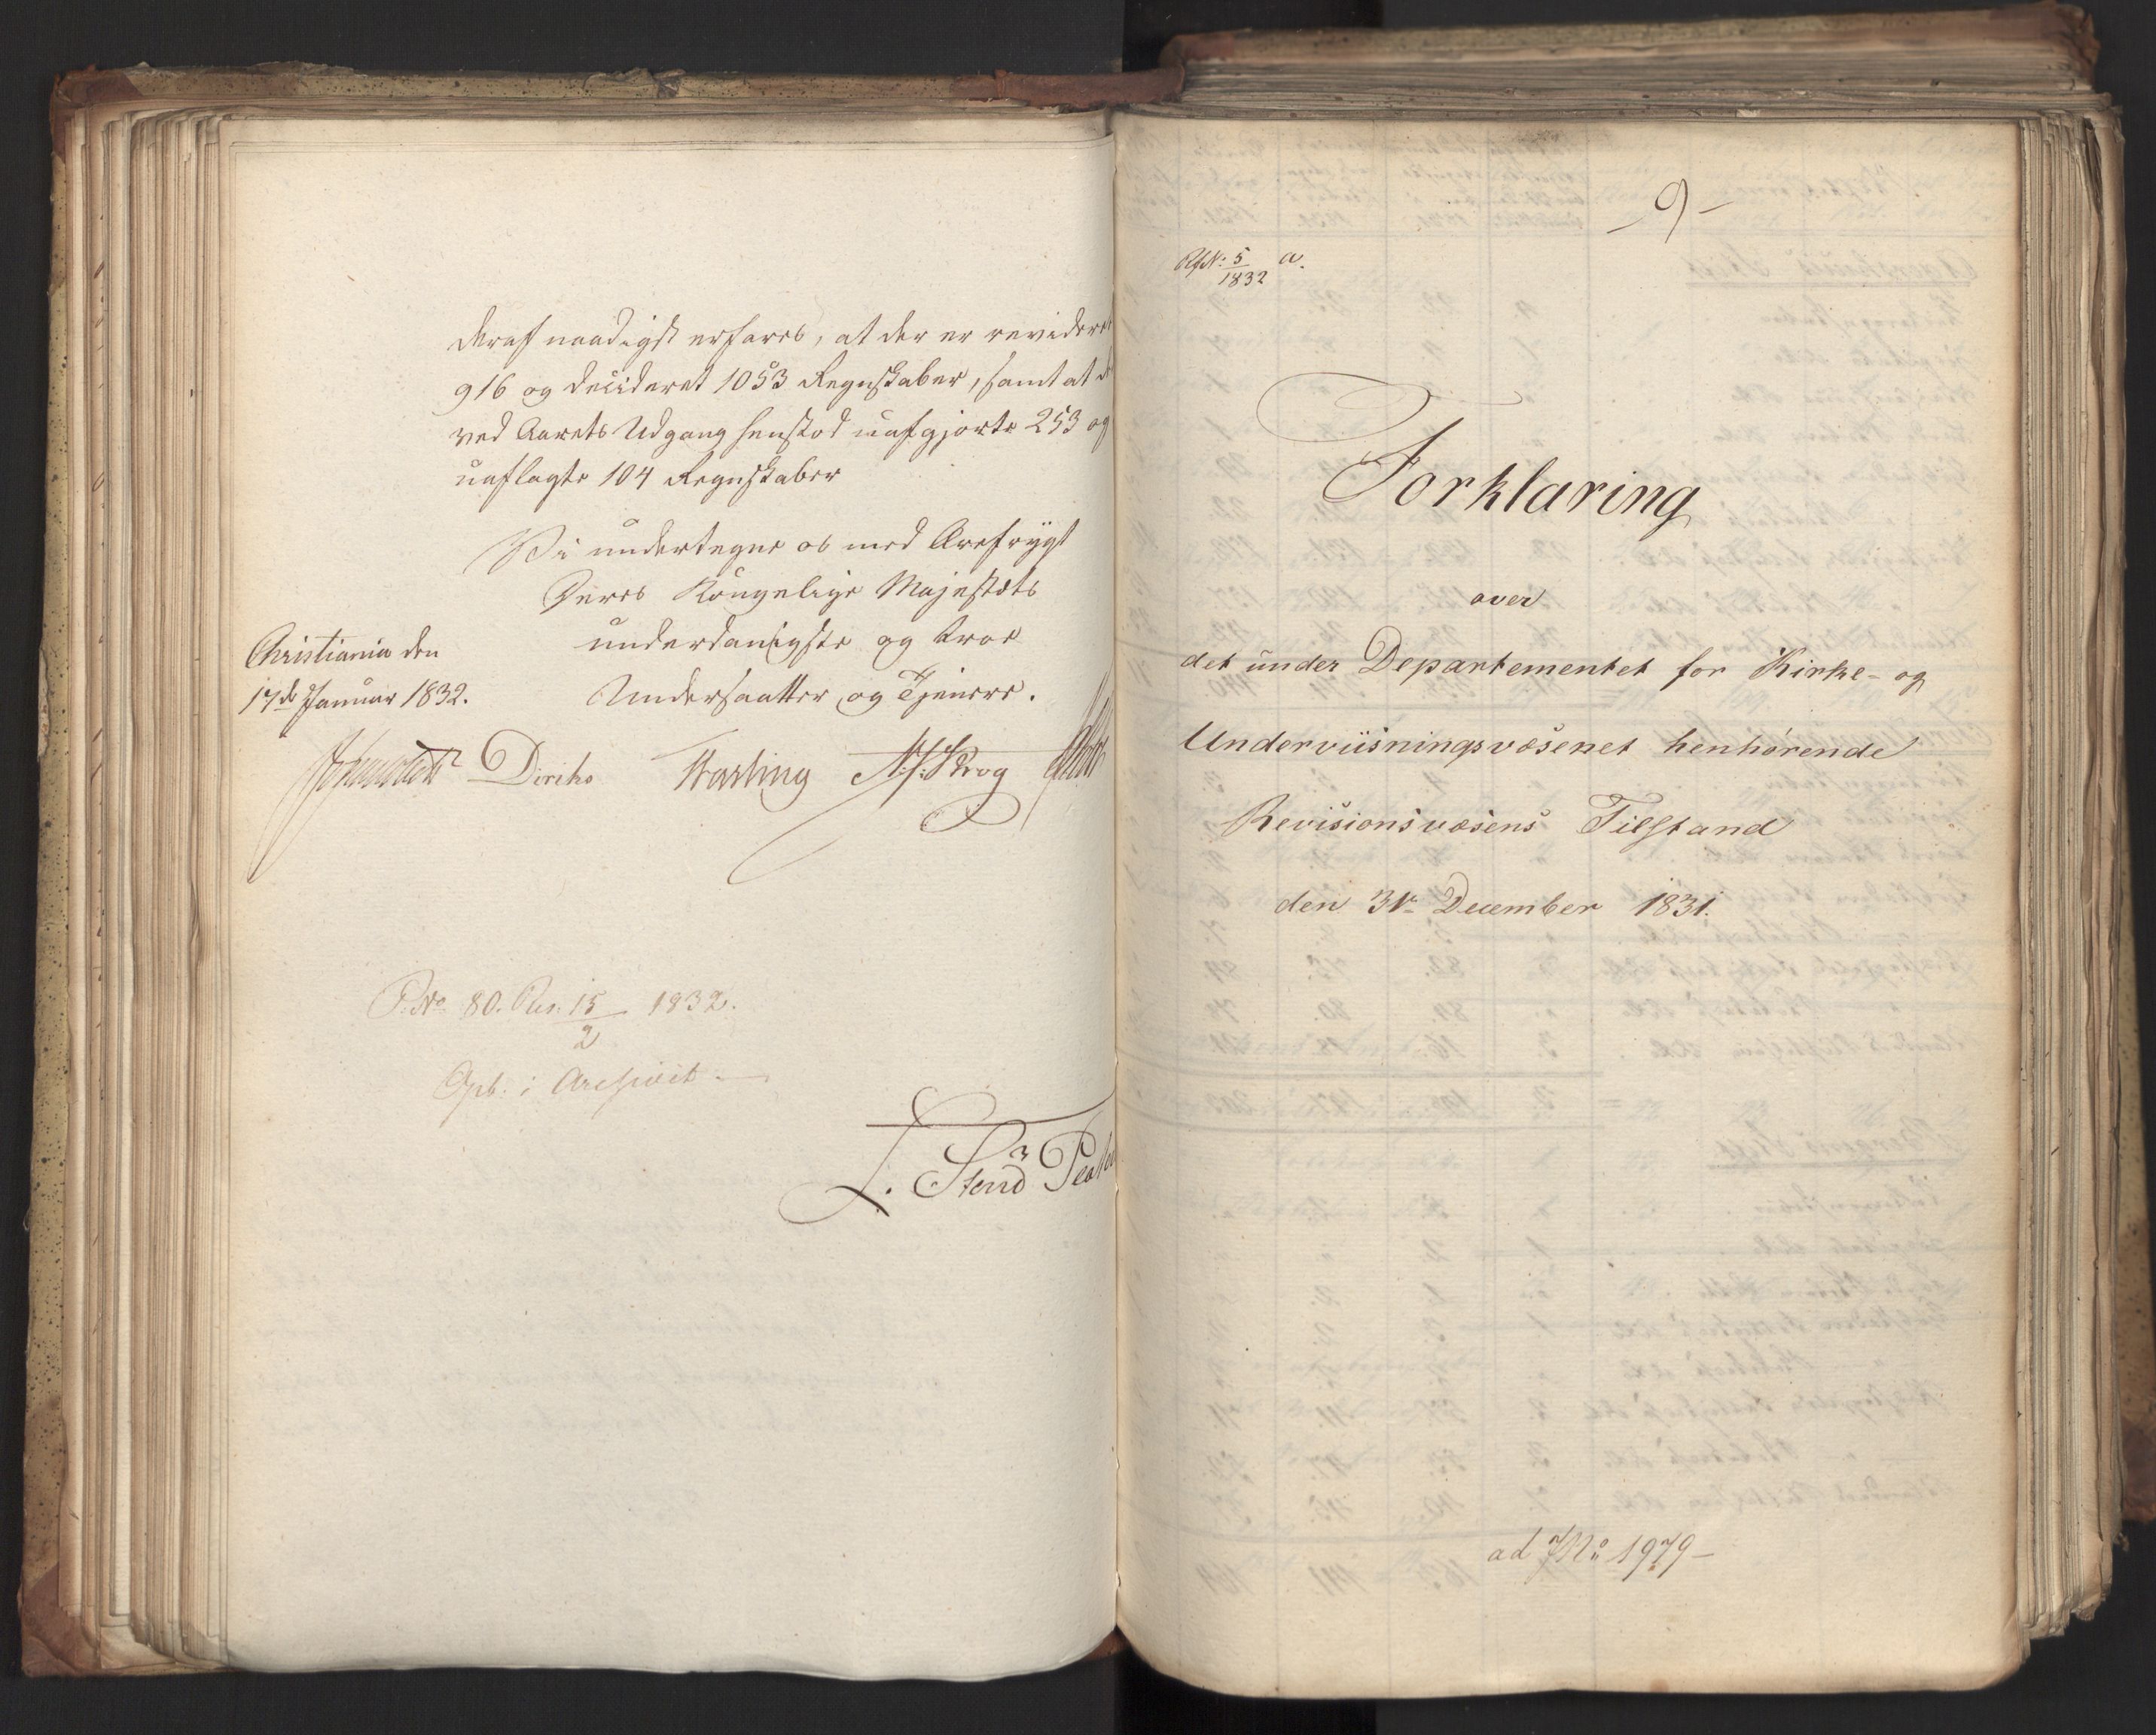 deraf naadigst erfares, at der er revideret
916 og decideret 1053 Regnskaber, samt at
ved Aarets Udgang henstod uafgjorte 253 og
uaflagte 104 Regnskaber
Vi undertegne os med Ærefrygt
Deres Kongelige Majestæts
underdanigste og troe
Undersaatter og Tjenere.
Christiania den
17de Januar 1832.
Diriks N.J. Krog
P. No 80. Res. 15/2 1832.
Opb. i Archivet.
9
RfN: 5/1832 a.
Forklaring
over
det under Departementet for Kirke- og
Underviisningsvæsenet henhørende
Revisionsvæsens Tilstand
den 31te December 1831.
ad No 1979